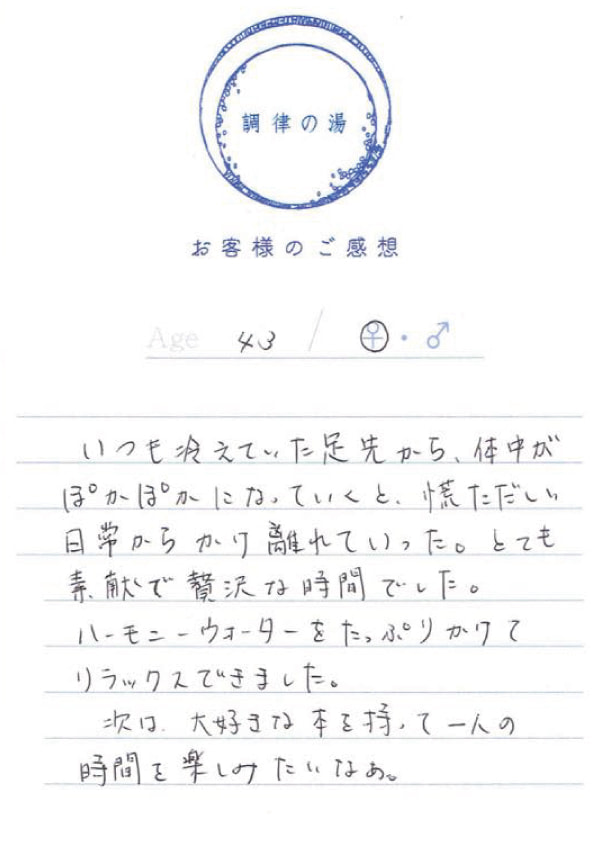 調律の湯
お客様のご感想
Age 43 / ♀・♂
いつも冷えていた足先から、体中が
ぽかぽかになっていくと、慌ただしい
日常からかけ離れていった。とても
素献で贅沢な時間でした。
ハーモニーウォーターをたっぷりかけて
リラックスできました。
次は、大好きな本を持って一人の
時間を楽しみたいなぁ。